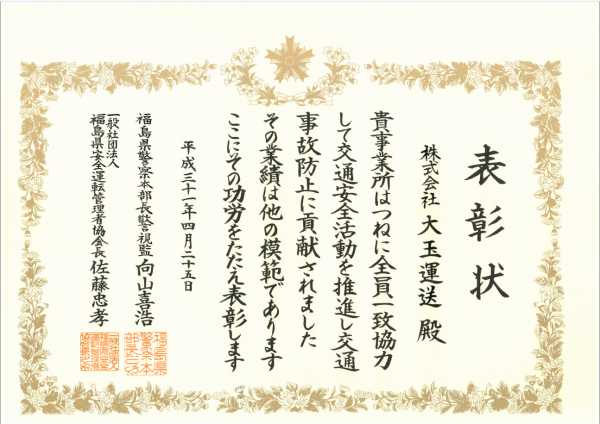 表彰状
株式会社 大玉運送 殿
貴事業所はつねに全員一致協力
して交通安全活動を推進し交通
事故防止に貢献されました
その業績は他の模範であります
ここにその功労をたたえ表彰します
平成三十一年四月二十五日
福島県警察本部長警視監 向山喜浩
一般社団法人
福島県安全運転管理者協会長 佐藤忠孝
福島県
警察本
部長之印